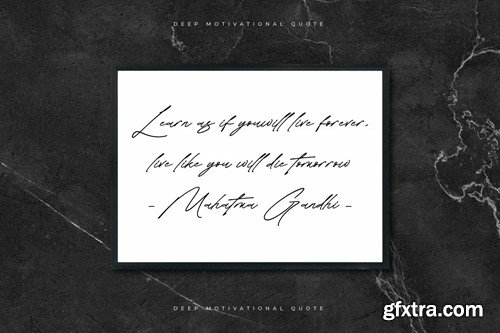 DEEP MOTIVATIONAL QUOTE
Learn as if youwill live forever,
live like you will die tomorrow
- Mahatma Gandhi -
DEEP MOTIVATIONAL QUOTE
gfxtra.com